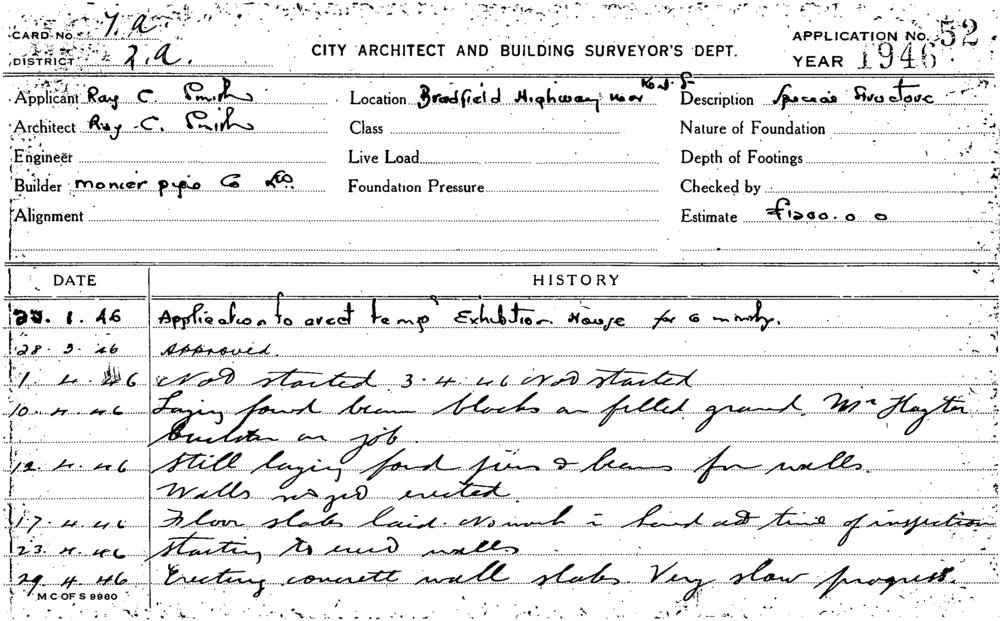 CARD No. 7.a.
DISTRICT 2.a.
CITY ARCHITECT AND BUILDING SURVEYOR'S DEPT.
APPLICATION No. 52
YEAR 1946
Applicant Ray C. Smith
Location Bradfield Highway near Kent St
Description Special Structure
Architect Ray C. Smith
Class
Nature of Foundation
Engineer
Live Load
Depth of Footings
Builder monier pipe Co Ltd.
Foundation Pressure
Checked by
Alignment
Estimate £1200.0 0
DATE HISTORY
1.46 Application to erect temp Exhibition House for 6 months.
28.3.46 APPROVED.
1.4.46 Not started 3.4.46 Not started
10.4.46 Laying found beam blocks on filled ground. Mr Hayter
builder on job.
12.4.46 Still laying found piers & beams for walls.
Walls not yet erected.
17.4.46 Floor slabs laid. No work in hand at time of inspection
23.4.46 Starting to erect walls.
29.4.46 Erecting concrete wall slabs Very slow progress.
M C OF S 9980